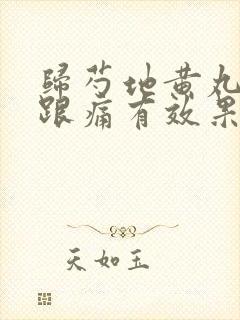 歸芍地黄丸
跟痛有效果
天如玉